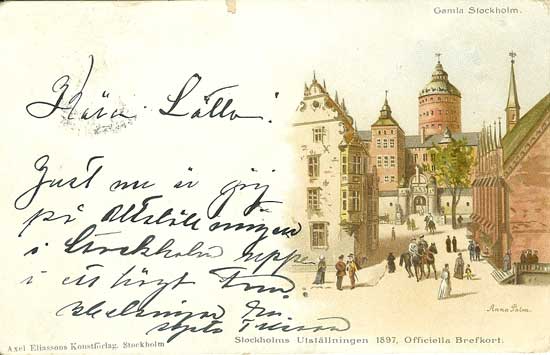 Gamla Stockholm.
Kära Lotta!
Just nu är jag
på Utställningen
i Stockholm uppe
i ett högt
Anna Palm.
Stockholms Utställningen 1897. Officiella Brefkort.
Axel Eliassons Konstförlag. Stockholm